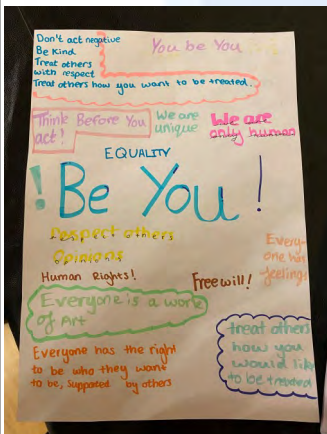 Don't act negative
Be Kind
Treat others
with respect
Treat others how you want to be treated.
You be You
Think Before You
act!
We are
unique
We are
only human
EQUALITY
! Be You !
Respect others
Opinions
Human Rights!
Every-
one has
feelings
Free will!
Everyone is a work
of Art
Everyone has the right
to be who they want
to be, supported by others
treat others
how you
would like
to be treated